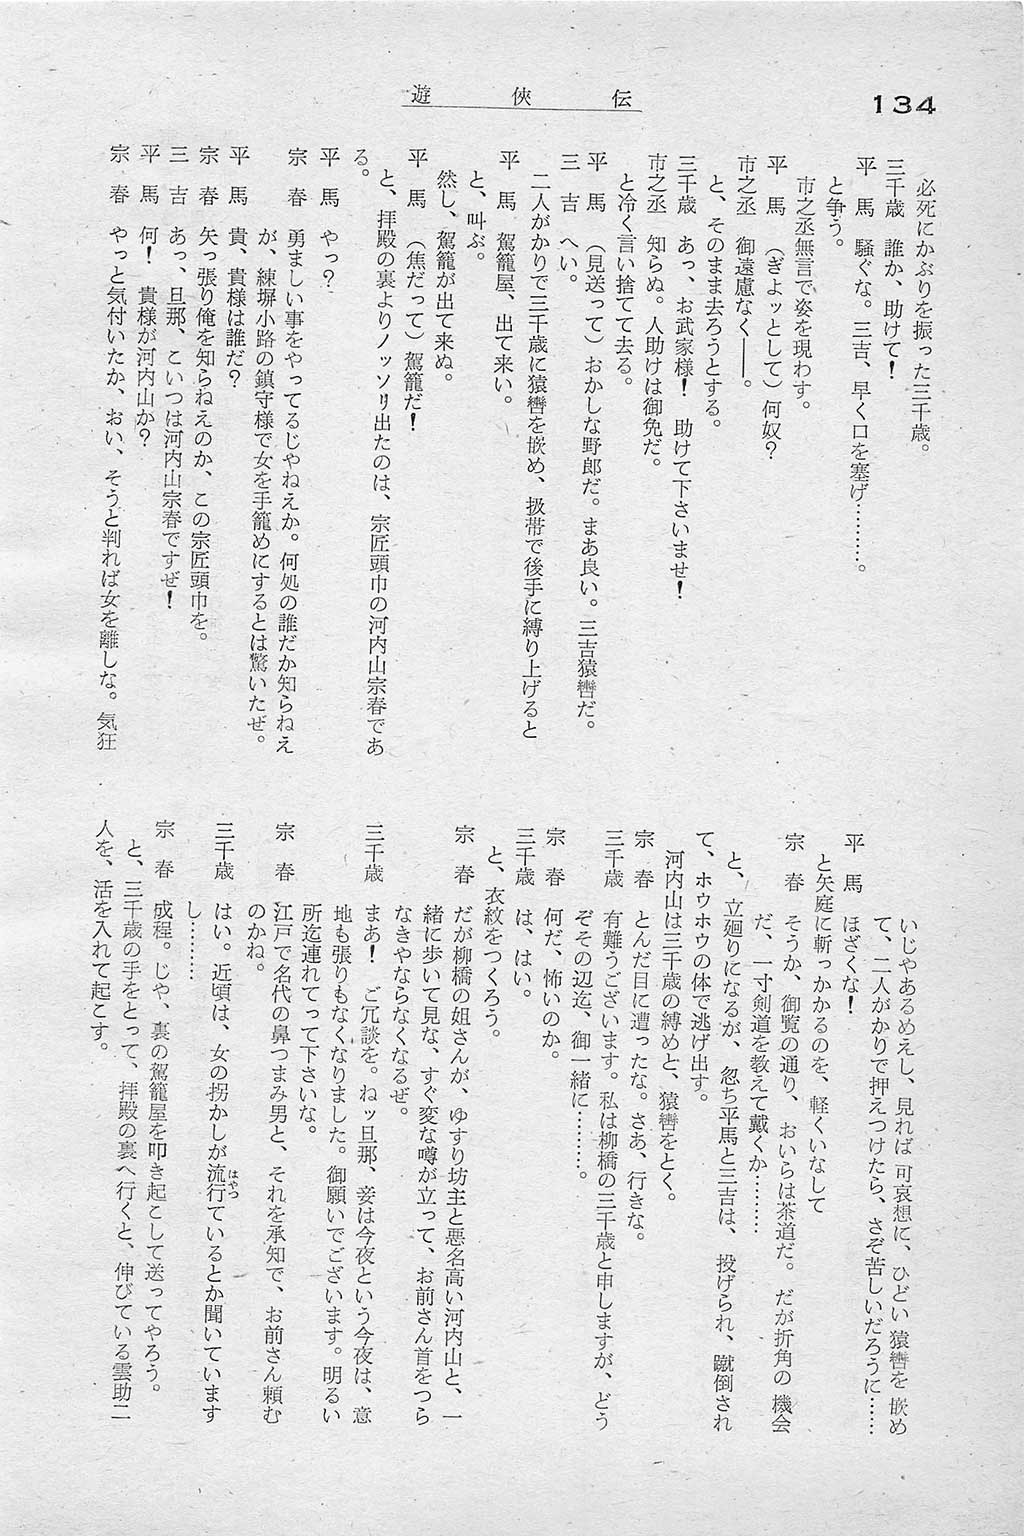 134
遊俠伝
必死にかぶりを振った三千歳。
三千歳　誰か、助けて！
平　馬　騒ぐな。三吉、早く口を塞げ………。
と争う。
市之丞無言で姿を現わす。
平　馬　（ぎよッとして）何奴？
市之丞　御遠慮なく――。
と、そのまま去ろうとする。
三千歳　あっ、お武家様！　助けて下さいませ！
市之丞　知らぬ。人助けは御免だ。
と冷く言い捨てて去る。
平　馬　（見送って）おかしな野郎だ。まあ良い。三吉猿轡だ。
三　吉　へい。
二人がかりで三千歳に猿轡を嵌め、扱帯で後手に縛り上げると
平　馬　駕籠屋、出て来い。
と、叫ぶ。
然し、駕籠が出て来ぬ。
平　馬　（焦だって）駕籠だ！
と、拝殿の裏よりノッソリ出たのは、宗匠頭巾の河内山宗春であ
る。
平　馬　やっ？
宗　春　勇ましい事をやってるじゃねえか。何処の誰だか知らねえ
が、練塀小路の鎮守様で女を手籠めにするとは驚いたぜ。
平　馬　貴、貴様は誰だ？
宗　春　矢っ張り俺を知らねえのか、この宗匠頭巾を。
三　吉　あっ、旦那、こいつは河内山宗春ですぜ！
平　馬　何！　貴様が河内山か？
宗　春　やっと気付いたか、おい、そうと判れば女を離しな。気狂
いじゃあるめえし、見れば可哀想に、ひどい猿轡を嵌め
て、二人がかりで押えつけたら、さぞ苦しいだろうに……
平　馬　ほざくな！
と矢庭に斬っかかるのを、軽くいなして
宗　春　そうか、御覧の通り、おいらは茶道だ。だが折角の機会
だ、一寸剣道を教えて戴くか………
と、立廻りになるが、忽ち平馬と三吉は、投げられ、蹴倒され
て、ホウホウの体で逃げ出す。
河内山は三千歳の縛めと、猿轡をとく。
宗　春　とんだ目に遭ったな。さあ、行きな。
三千歳　有難うございます。私は柳橋の三千歳と申しますが、どう
ぞその辺迄、御一緒に………。
宗　春　何だ、怖いのか。
三千歳　は、はい。
と、衣紋をつくろう。
宗　春　だが柳橋の姐さんが、ゆすり坊主と悪名高い河内山と、一
緒に歩いて見な、すぐ変な噂が立って、お前さん首をつら
なきやならなくなるぜ。
三千歳　まあ！　ご冗談を。ねッ旦那、妾は今夜という今夜は、意
地も張りもなくなりました。御願いでございます。明るい
所迄連れてって下さいな。
宗　春　江戸で名代の鼻つまみ男と、それを承知で、お前さん頼む
のかね。
三千歳　はい。近頃は、女の拐かしが流行（はやっ）ているとか聞いています
し………
宗　春　成程。じゃ、裏の駕籠屋を叩き起こして送ってやろう。
と、三千歳の手をとって、拝殿の裏へ行くと、伸びている雲助二
人を、活を入れて起こす。